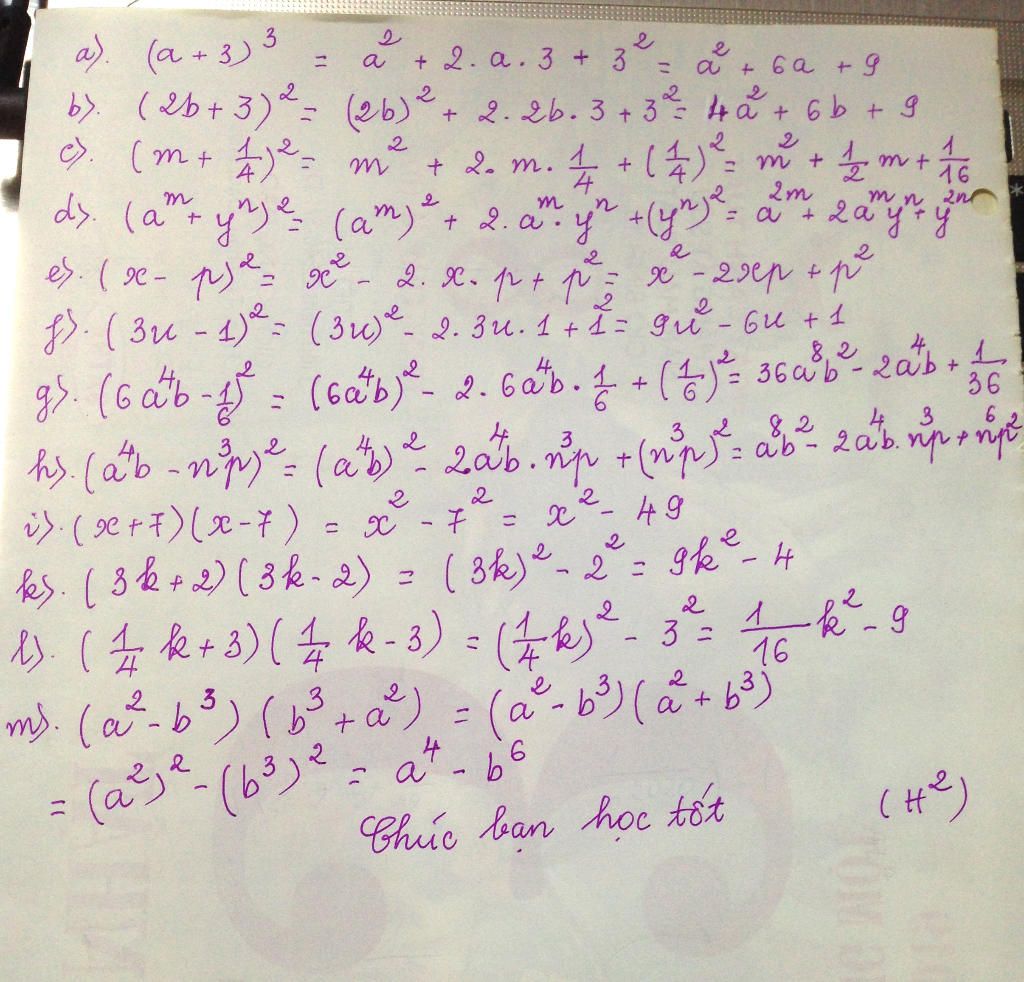 a). (a + 3)³ = a² + 2.a.3 + 3² = a² + 6a + 9
b). (2b + 3)² = (2b)² + 2.2b.3 + 3² = 4a² + 6b + 9
c). (m + 1/4)² = m² + 2.m.1/4 + (1/4)² = m² + 1/2 m + 1/16
d). (aᵐ + yⁿ)² = (aᵐ)² + 2.aᵐ.yⁿ + (yⁿ)² = a²ᵐ + 2aᵐyⁿ + y²ⁿ
e). (x - p)² = x² - 2.x.p + p² = x² - 2xp + p²
f). (3u - 1)² = (3u)² - 2.3u.1 + 1² = 9u² - 6u + 1
g). (6a⁴b - 1/6)² = (6a⁴b)² - 2.6a⁴b.1/6 + (1/6)² = 36a⁸b² - 2a⁴b + 1/36
h). (a⁴b - n³p)² = (a⁴b)² - 2a⁴b.n³p + (n³p)² = a⁸b² - 2a⁴b.n³p + n⁶p²
i). (x + 7)(x - 7) = x² - 7² = x² - 49
k). (3k + 2)(3k - 2) = (3k)² - 2² = 9k² - 4
l). (1/4 k + 3)(1/4 k - 3) = (1/4 k)² - 3² = 1/16 k² - 9
m). (a² - b³)(b³ + a²) = (a² - b³)(a² + b³)
= (a²)² - (b³)² = a⁴ - b⁶
Chúc bạn học tốt (H²)